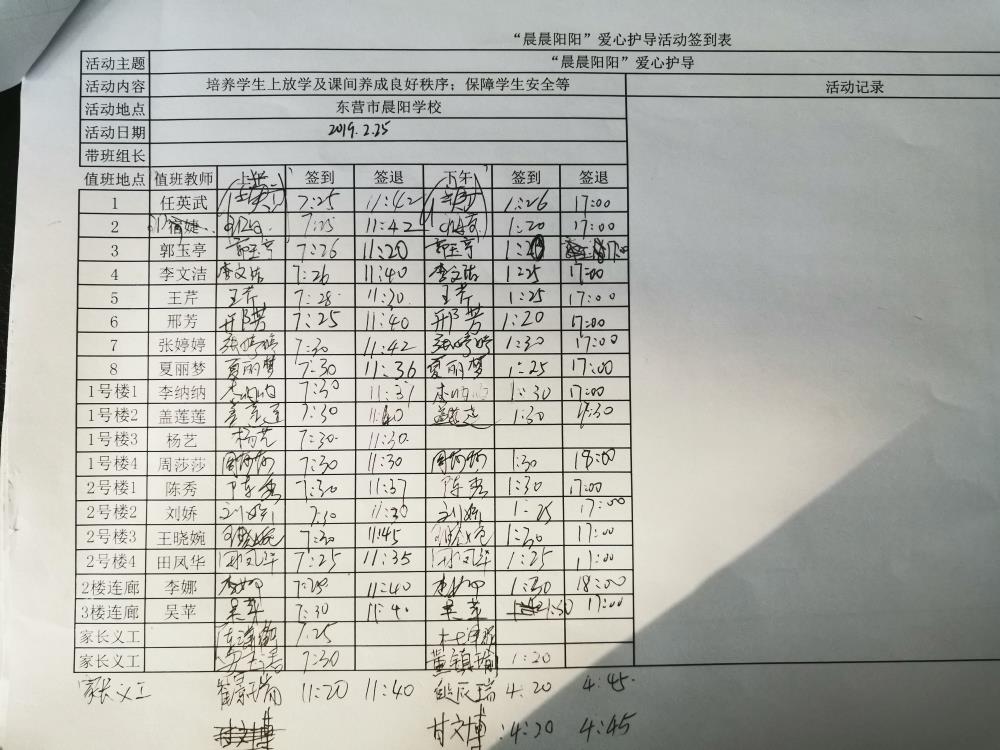 “晨晨阳阳”爱心护导活动签到表
活动主题 “晨晨阳阳”爱心护导
活动内容 培养学生上放学及课间养成良好秩序；保障学生安全等 活动记录
活动地点 东营市晨阳学校
活动日期 2019.2.25
带班组长
值班地点 值班教师 上午 签到 签退 下午 签到 签退
1 任英武 7:25 11:42 1:26 17:00
2 宿婕 7:25 11:42 1:20 17:00
3 郭玉亭 郭玉亭 7:26 11:20 郭玉亭 17:00
4 李文洁 李文洁 7:26 11:40 李文洁 1:25 17:00
5 王芹 王芹 7:28 11:30 王芹 1:25 17:00
6 邢芳 邢芳 7:25 11:40 邢芳 1:20 17:00
7 张婷婷 张婷婷 7:30 11:42 张婷婷 1:30 17:00
8 夏丽梦 夏丽梦 7:30 11:36 夏丽梦 1:25 17:00
1号楼1 李纳纳 李纳纳 7:30 11:37 李纳纳 1:30 17:00
1号楼2 盖莲莲 盖莲莲 7:30 11:40 盖莲莲 1:30
1号楼3 杨艺 杨艺 7:30 11:30
1号楼4 周莎莎 周莎莎 7:30 11:30 周莎莎 1:30 18:00
2号楼1 陈秀 陈秀 7:30 11:37 陈秀 1:30 17:00
2号楼2 刘娇 刘娇 11:30 刘娇 1:25 17:00
2号楼3 王晓婉 7:30 11:45 1:30 17:00
2号楼4 田凤华 田凤华 7:25 11:35 田凤华 1:25 17:00
2楼连廊 李娜 李娜 11:40 李娜 1:30 18:00
3楼连廊 吴苹 吴苹 7:30 11:40 吴苹 1:30 17:00
家长义工 7:25
家长义工 7:30 董镇瑜 1:20
家长义工 11:20 11:40 4:20 4:45
甘文博 4:20 4:45